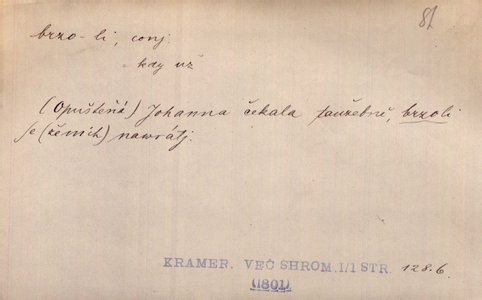 81
brzo-li, conj.
kdy už
(Opuštěná) Johanna čekala toužebně, brzoli
se (ženich) nawrátj.
KRAMER. VEČ SHROM. I/1 STR. 128.6.
(1801)